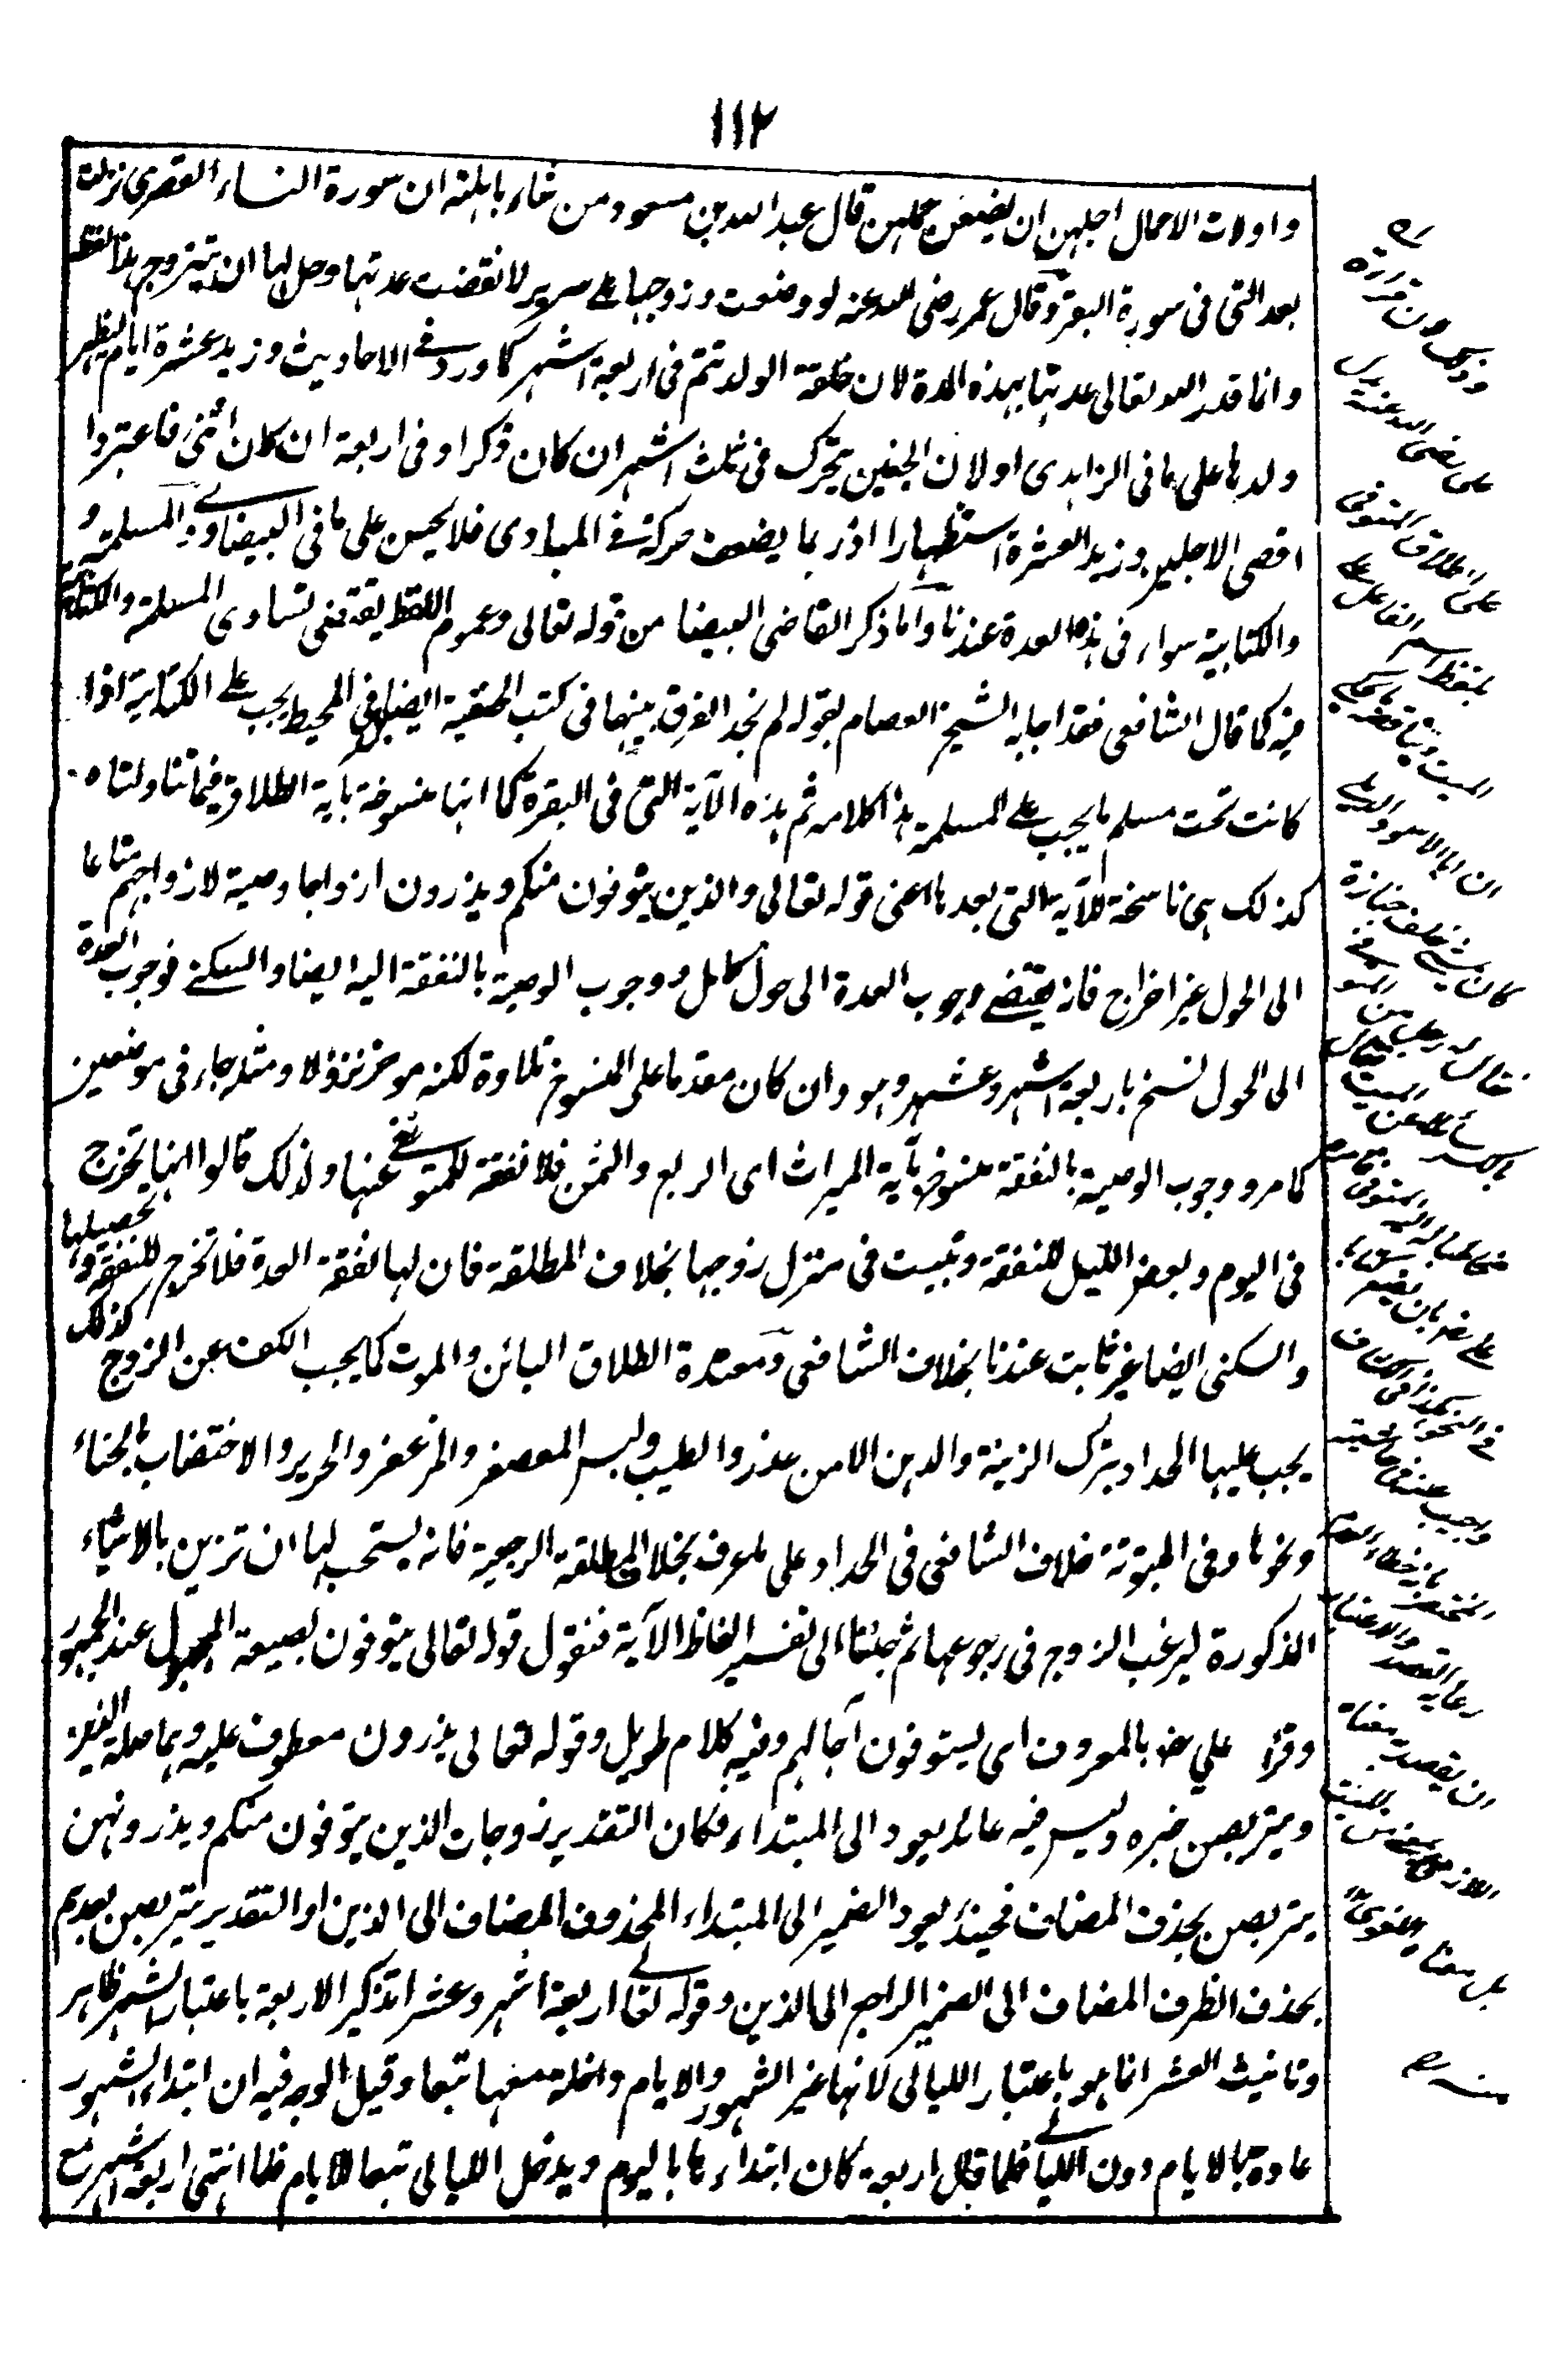 ١١٢
واولات الاحمال اجلهن ان يضعن حملهن قال عبد الله بن مسعود من شاء باهلته ان سورة النساء القصرى نزلت
بعد التى فى سورة البقرة وقال عمر رضى الله عنه لو وضعت وزوجها على سرير لانقضت عدتها وحل لها ان تتزوج هذا لفظه
وانما قدر الله تعالى عدتها بهذه المدة لان خلقة الولد تتم فى اربعة اشهر كما ورد فى الاحاديث وزيد عشرة ايام ليظهر
ولدها على ما فى الزاهدى او لان الجنين يتحرك فى ثلث اشهر ان كان ذكرا وفى اربعة ان كان انثى فاعتبروا
اقصى الاجلين وزيد العشرة استظهارا اذ ربما يضعف حركته فى المبادى فلا يحس على ما فى البيضاوى والمسلمة و
والكتابية سواء فى هذه العدة عندنا واما ذكر القاضى البيضا من قوله تعالى وعموم اللفظ يقتضى تساوى المسلمة والكتابية
فيه كما قال الشافعى فقد اجابه الشيخ العصام بقوله لم نجد الفرق بينهما فى كتب الحنفية ايضا ففى المحيط يجب على الكتابية اذا
كانت تحت مسلم ما يجب على المسلمة هذا كلامه ثم هذه الآية التى فى البقرة كما انها منسوخة بآية الطلاق فيما تناولتاه
كذلك هى ناسخة للآية التى بعدها اعنى قوله تعالى والذين يتوفون منكم ويذرون ازواجا وصية لازواجهم متاعا
الى الحول غير اخراج فانه يقتضى وجوب العدة الى حول كامل ووجوب الوصية بالنفقة اليه ايضا والسكنى فوجوب العدة
الى الحول نسخ باربعة اشهر وعشر وهو وان كان مقدما على المنسوخ تلاوة لكنه موخر نزولا ومثله جاء فى موضعين
كما مر ووجوب الوصية بالنفقة منسوخ بآية الميراث اى الربع والثمن فلا نفقة للمتوفى عنها ولذلك قالوا انها تخرج
فى اليوم وبعض الليل للنفقة وتبيت فى منزل زوجها بخلاف المطلقة فان لها نفقة العدة فلا تخرج للنفقة وتحصيلها كذلك
والسكنى ايضا غير ثابت عندنا بخلاف الشافعى ومعتدة الطلاق البائن والموت كما يجب الكف عن الزوج
يجب عليها الحداد بترك الزينة والدهن الا من عذر والطيب ولبس المعصفر والمزعفر والحرير والاختضاب بالحناء
ونحوها وفى المبتوتة خلاف الشافعى فى الحداد على ما عرف بخلاف المطلقة الرجعية فانه يستحب لها ان تزين بالاشياء
المذكورة ليرغب الزوج فى رجوعها ثم جئنا الى تفسير الفاظ الآية فنقول قوله تعالى يتوفون بصيغة المجهول عند الجمهور
وقرأ علي رض بالمعروف اى يستوفون آجالهم وفيه كلام طويل وقوله تعالى يذرون معطوف عليه وهما صلة الذين
ويتربصن خبره وليس فيه عائد يعود الى المبتداء فكان التقدير زوجات الذين يتوفون منكم ويذرونهن
يتربصن بحذف المضاف فحينئذ يعود الضمير الى المبتداء المحذوف المضاف الى الذين او التقدير يتربصن بعدهم
بحذف الظرف المضاف الى الضمير الراجع الى الذين وقوله تعالى اربعة اشهر وعشرا تذكير الاربعة باعتبار الشهر ظاهر
وتانيث العشر انما هو باعتبار الليالى لانها غير الشهور والايام داخلة معها تبعا وقيل الوجه فيه ان ابتداء الشهور
عادة بالايام دون الليالى فلما قال اربعة كان ابتداءها باليوم ويدخل الليالى تبعا للايام فلما انتهى اربعة اشهر مع
على رضى الله عنه
ان ابا الاسود الدئلى
كان يمشى خلف جنازة
فقال له رجل من المتوفى